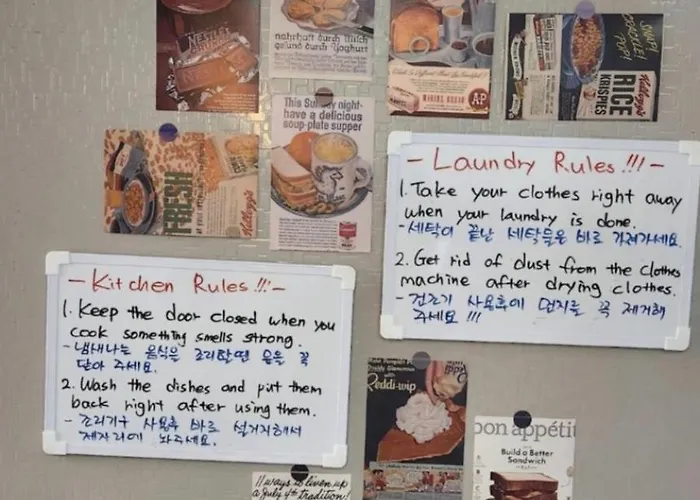 NESTLÉ'S
nahrhaft durch Milch
gesund durch Yoghurt
MARVEL BREAD
A&P
Kellogg's
RICE
KRISPIES
FRESH
Kellogg's
This Sunday night-
have a delicious
soup-plate supper
- Laundry Rules !!! -
1. Take your clothes right away
when your laundry is done.
- 세탁이 끝난 세탁물은 바로 가져가세요.
2. Get rid of dust from the clothes
machine after drying clothes.
- 건조기 사용후에 먼지를 꼭 제거해
주세요 !!!
- Kitchen Rules !!! -
1. Keep the door closed when you
cook something smells strong.
- 냄새나는 음식은 조리할땐 문을 꼭
닫아 주세요.
2. Wash the dishes and put them
back right after using them.
- 조리기구 사용후 바로 설거지해서
제자리에 놔주세요.
Reddi-wip
bon appétit
Build a Better
Sandwich
11 ways to liven up
a July 4th tradition!